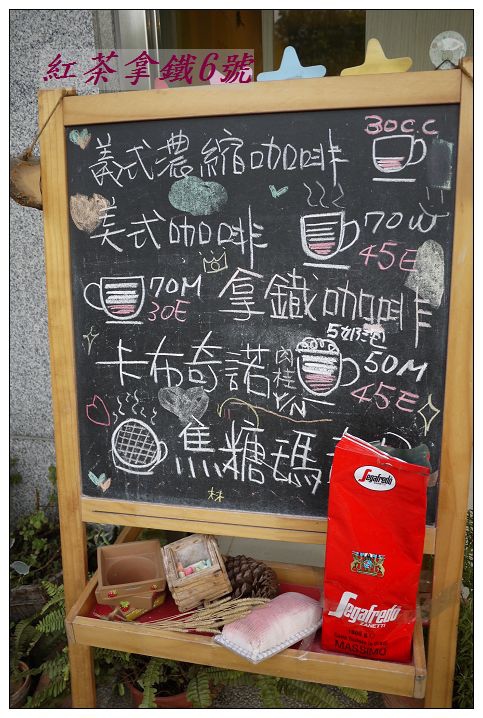 紅茶拿鐵6號
義式濃縮咖啡
30C.C
美式咖啡
70W
45E
70M
30E
拿鐵咖啡
卡布奇諾
肉桂
Y/N
50M
45E
焦糖瑪
Segafredo
Segafredo
ZANETTI
MASSIMO